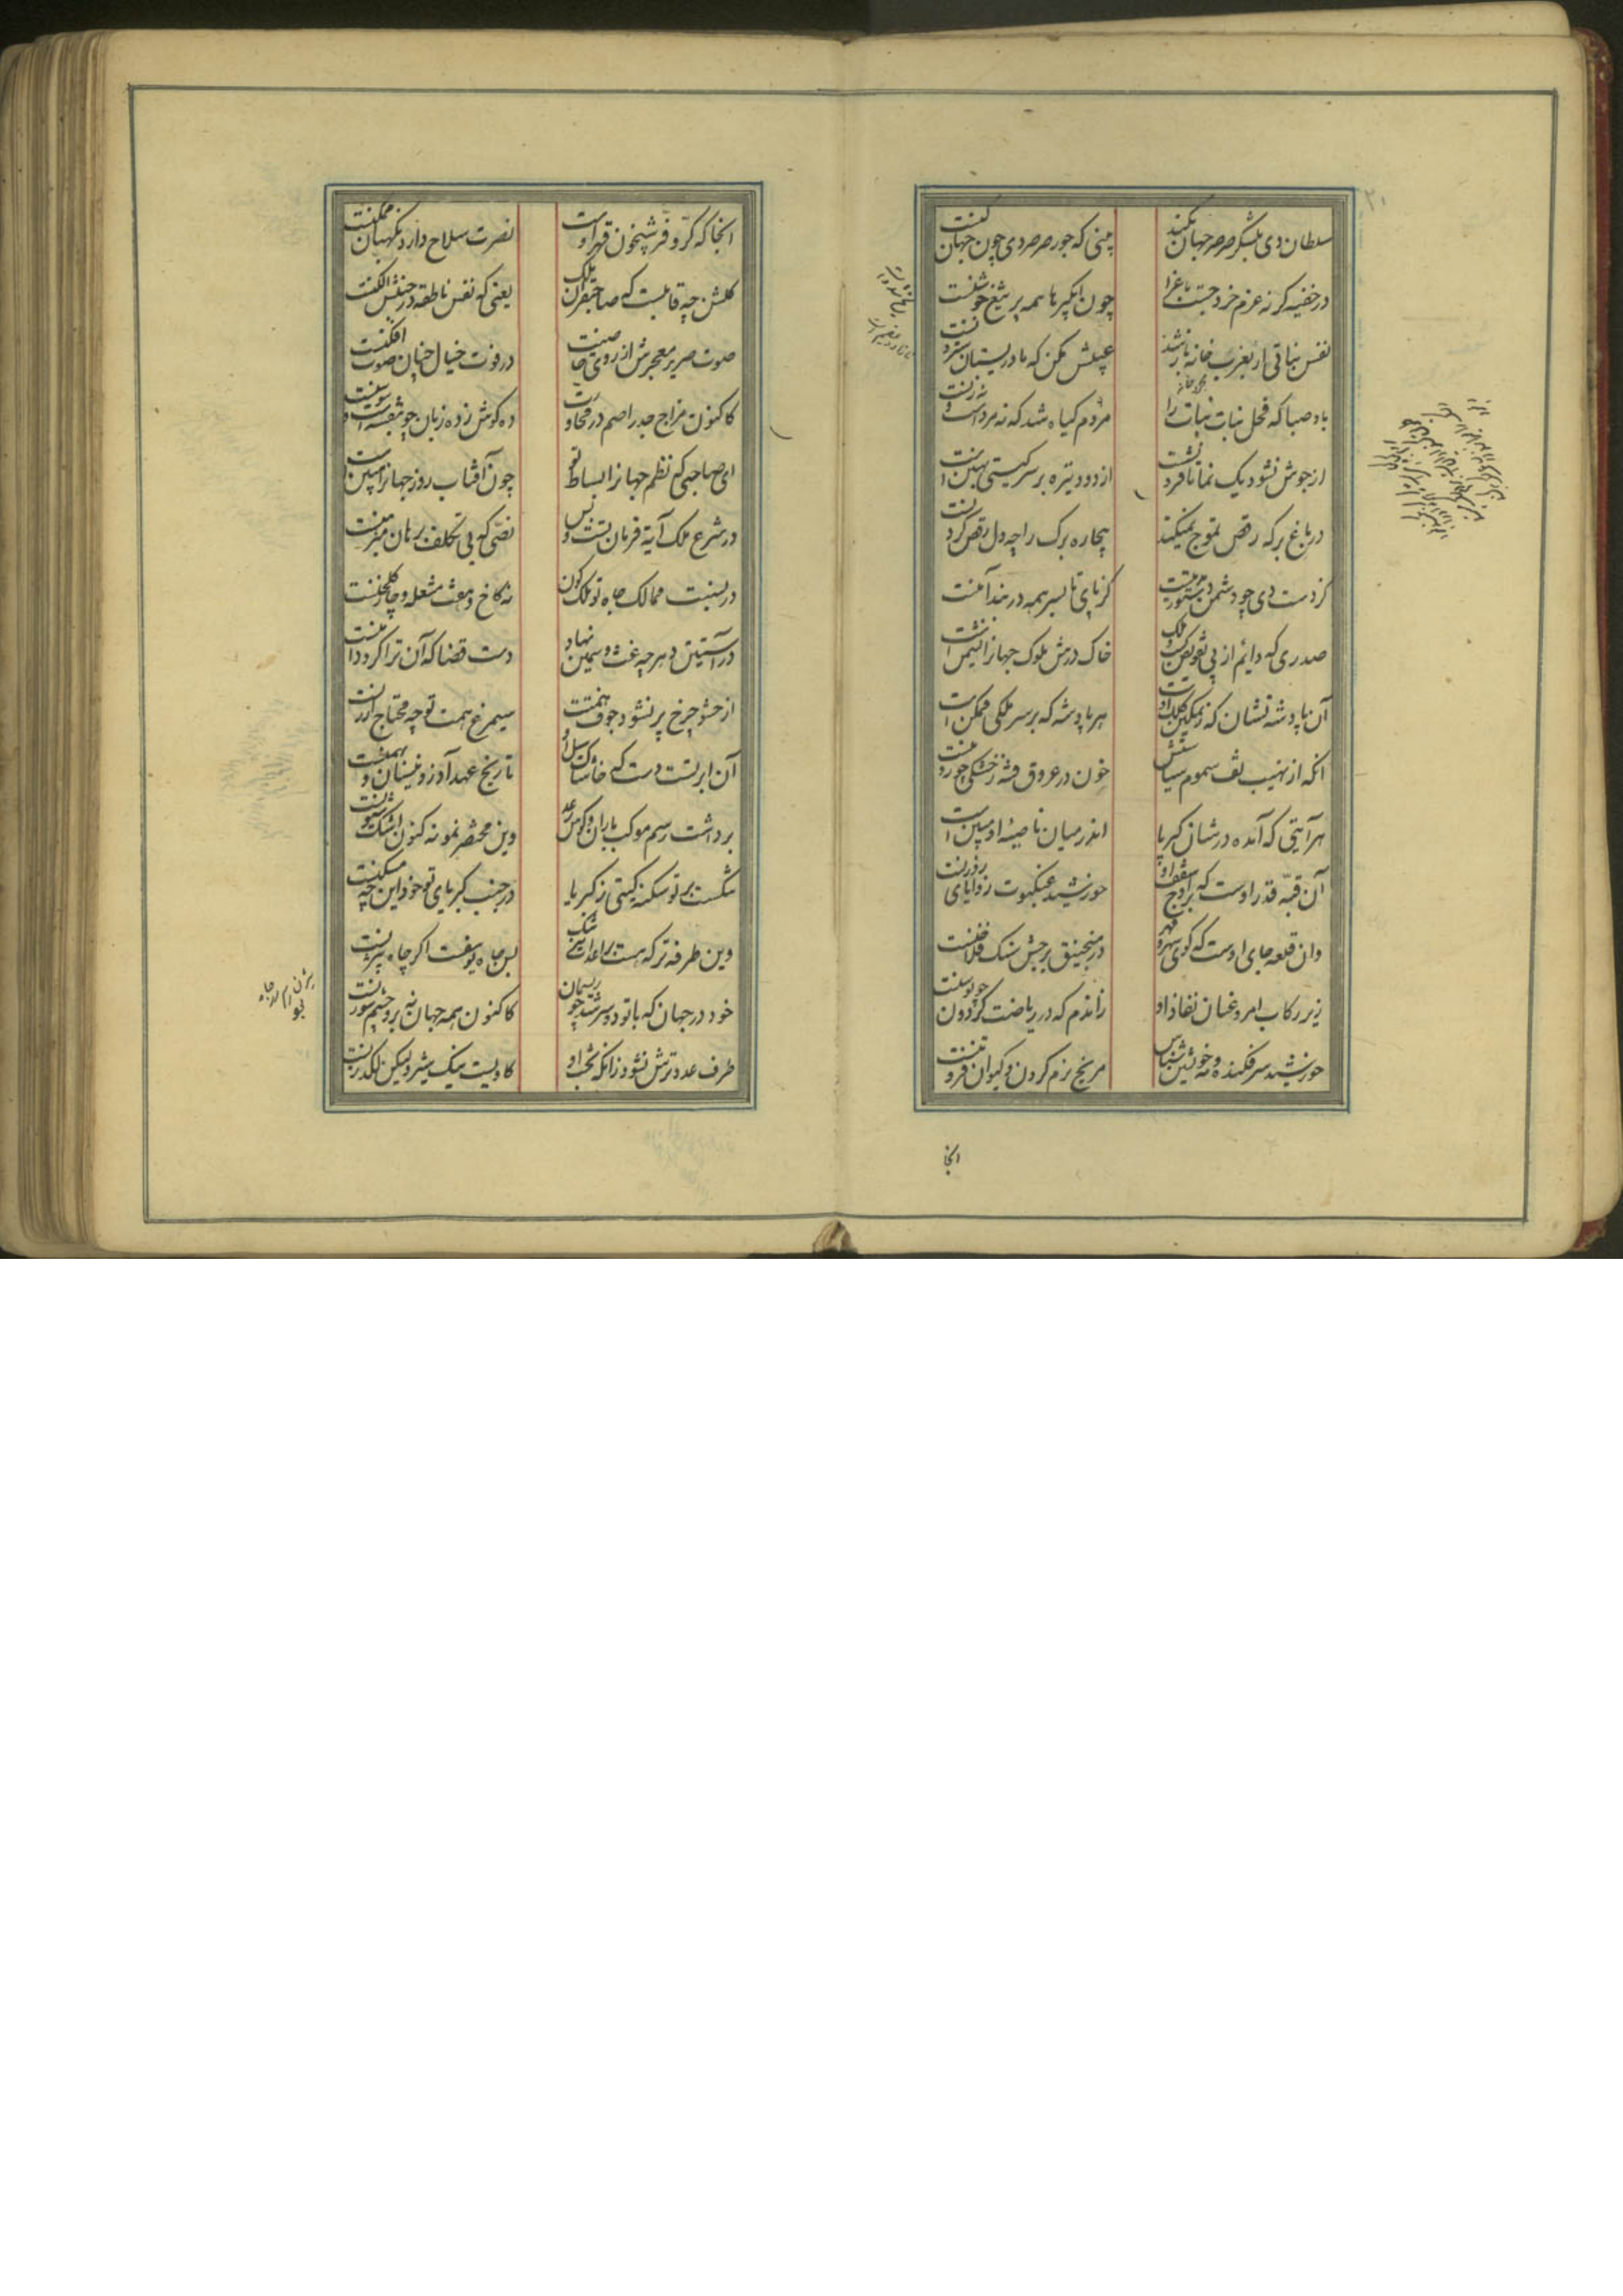 سلطان دی بلشکر صرصر جهان بکند
بینی که جور صرصر دی چون جهان کنست
در خفیه کر نه عزم خروجست باغ را
چون آبکیرها همه پر تیغ و جوشنست
نفس نباتی ار بعزب خانه باز شد
عیبش مکن که مادر بستان سترونست
باد صبا که فحل بنات نبات را
مردم کیاه شد که نه مردست و نه زنست
از جوش نشو دیک نما تا فرو نشست
از دود تیره بر سر کیتی نهنبنست
در باغ برکه رقص تموج نمیکند
بیچاره برک را چه دل رقص کردنست
کز دست دی چو دشمن دستور
کز پای تا بسر همه در بند آهنست
صدری که دائم از پی تفویض ملک
خاک درش ملوک جهانرا نشیمنست
آن پادشه نشان که ز تمکین کلک اوست
هر پادشه که بر سر ملکی ممکنست
آنکه از نهیب تف سموم سیاستش
خون در عروق فتنه ز خشکی چو روینست
هر آیتی که آمده در شان کبریا
اندر میان ناصیهٔ او مبینست
آن قبهٔ قدر اوست که بر اوج سقف او
خورشید عنکبوت زوایای روزنست
وان قلعه جاه اوست که کوی سپهر
در منجنیق برجش سنک فلاخنست
زیر رکاب امر و عنان نفاذ او
رانندم که در ریاضت کردون چو توسنست
خورشید سرفکنده و مه خویشتن شناس
مریخ نرم کردن و کیوان فروتنست
انجا
انجا که کر و فر شبیخون قهر اوست
نصرت سلاح دار و نکهبان مکمنست
کلکش چه قابلست که صاحبقران ملک
یعنی که نفس ناطقه در جنبش الکنست
صوت صریر معجزش از روی خاصیت
در قوت خیال چنان صوت افکنست
کاکنون مزاج جذر اصم در محاورت
ده کوش و ده زبان چو بنفشه است و سوسنست
ای صاحبی که نظم جهانرا بساط تو
چون آفتاب روز جهانرا مبینست
در شرع ملک آیة فرمان تست و بس
نصی که بی تکلف برهان مبرهنست
در نسبت ممالک جاه تو ملک کون
نه کاخ و هفت مشعله و چار کلخنست
در آستین دهر چه غث و سمین نهاد
دست قضا که آن ترا کرد دامنست
از حشو چرخ پر نشود جوف همتت
سیمرغ همت تو چه محتاج ارزنست
آن ابر تست دست که خاشاک سیل او
تاریخ عهد آذر و نیسان و بهمنست
برداشت رسم موکب باران و کوس رعد
وین مختصر نمونه کنون اشک و شیونست
نشکست بر تو سکنه کیتی ز کبریا
در جنب کبریای تو خود این چه مسکنست
وین طرفه تر که هست بر اعدات نیز تنک
پس چاه یوسفست اکر چاه بیژنست
خود در جهان که با تو دو سر شد چو ریسمان
کاکنون همه جهان نه برو چشم سوزنست
ظرف عدو ترش نشود زانکه بخت او
کاویست نیک شیر ولیکن لکدزنست